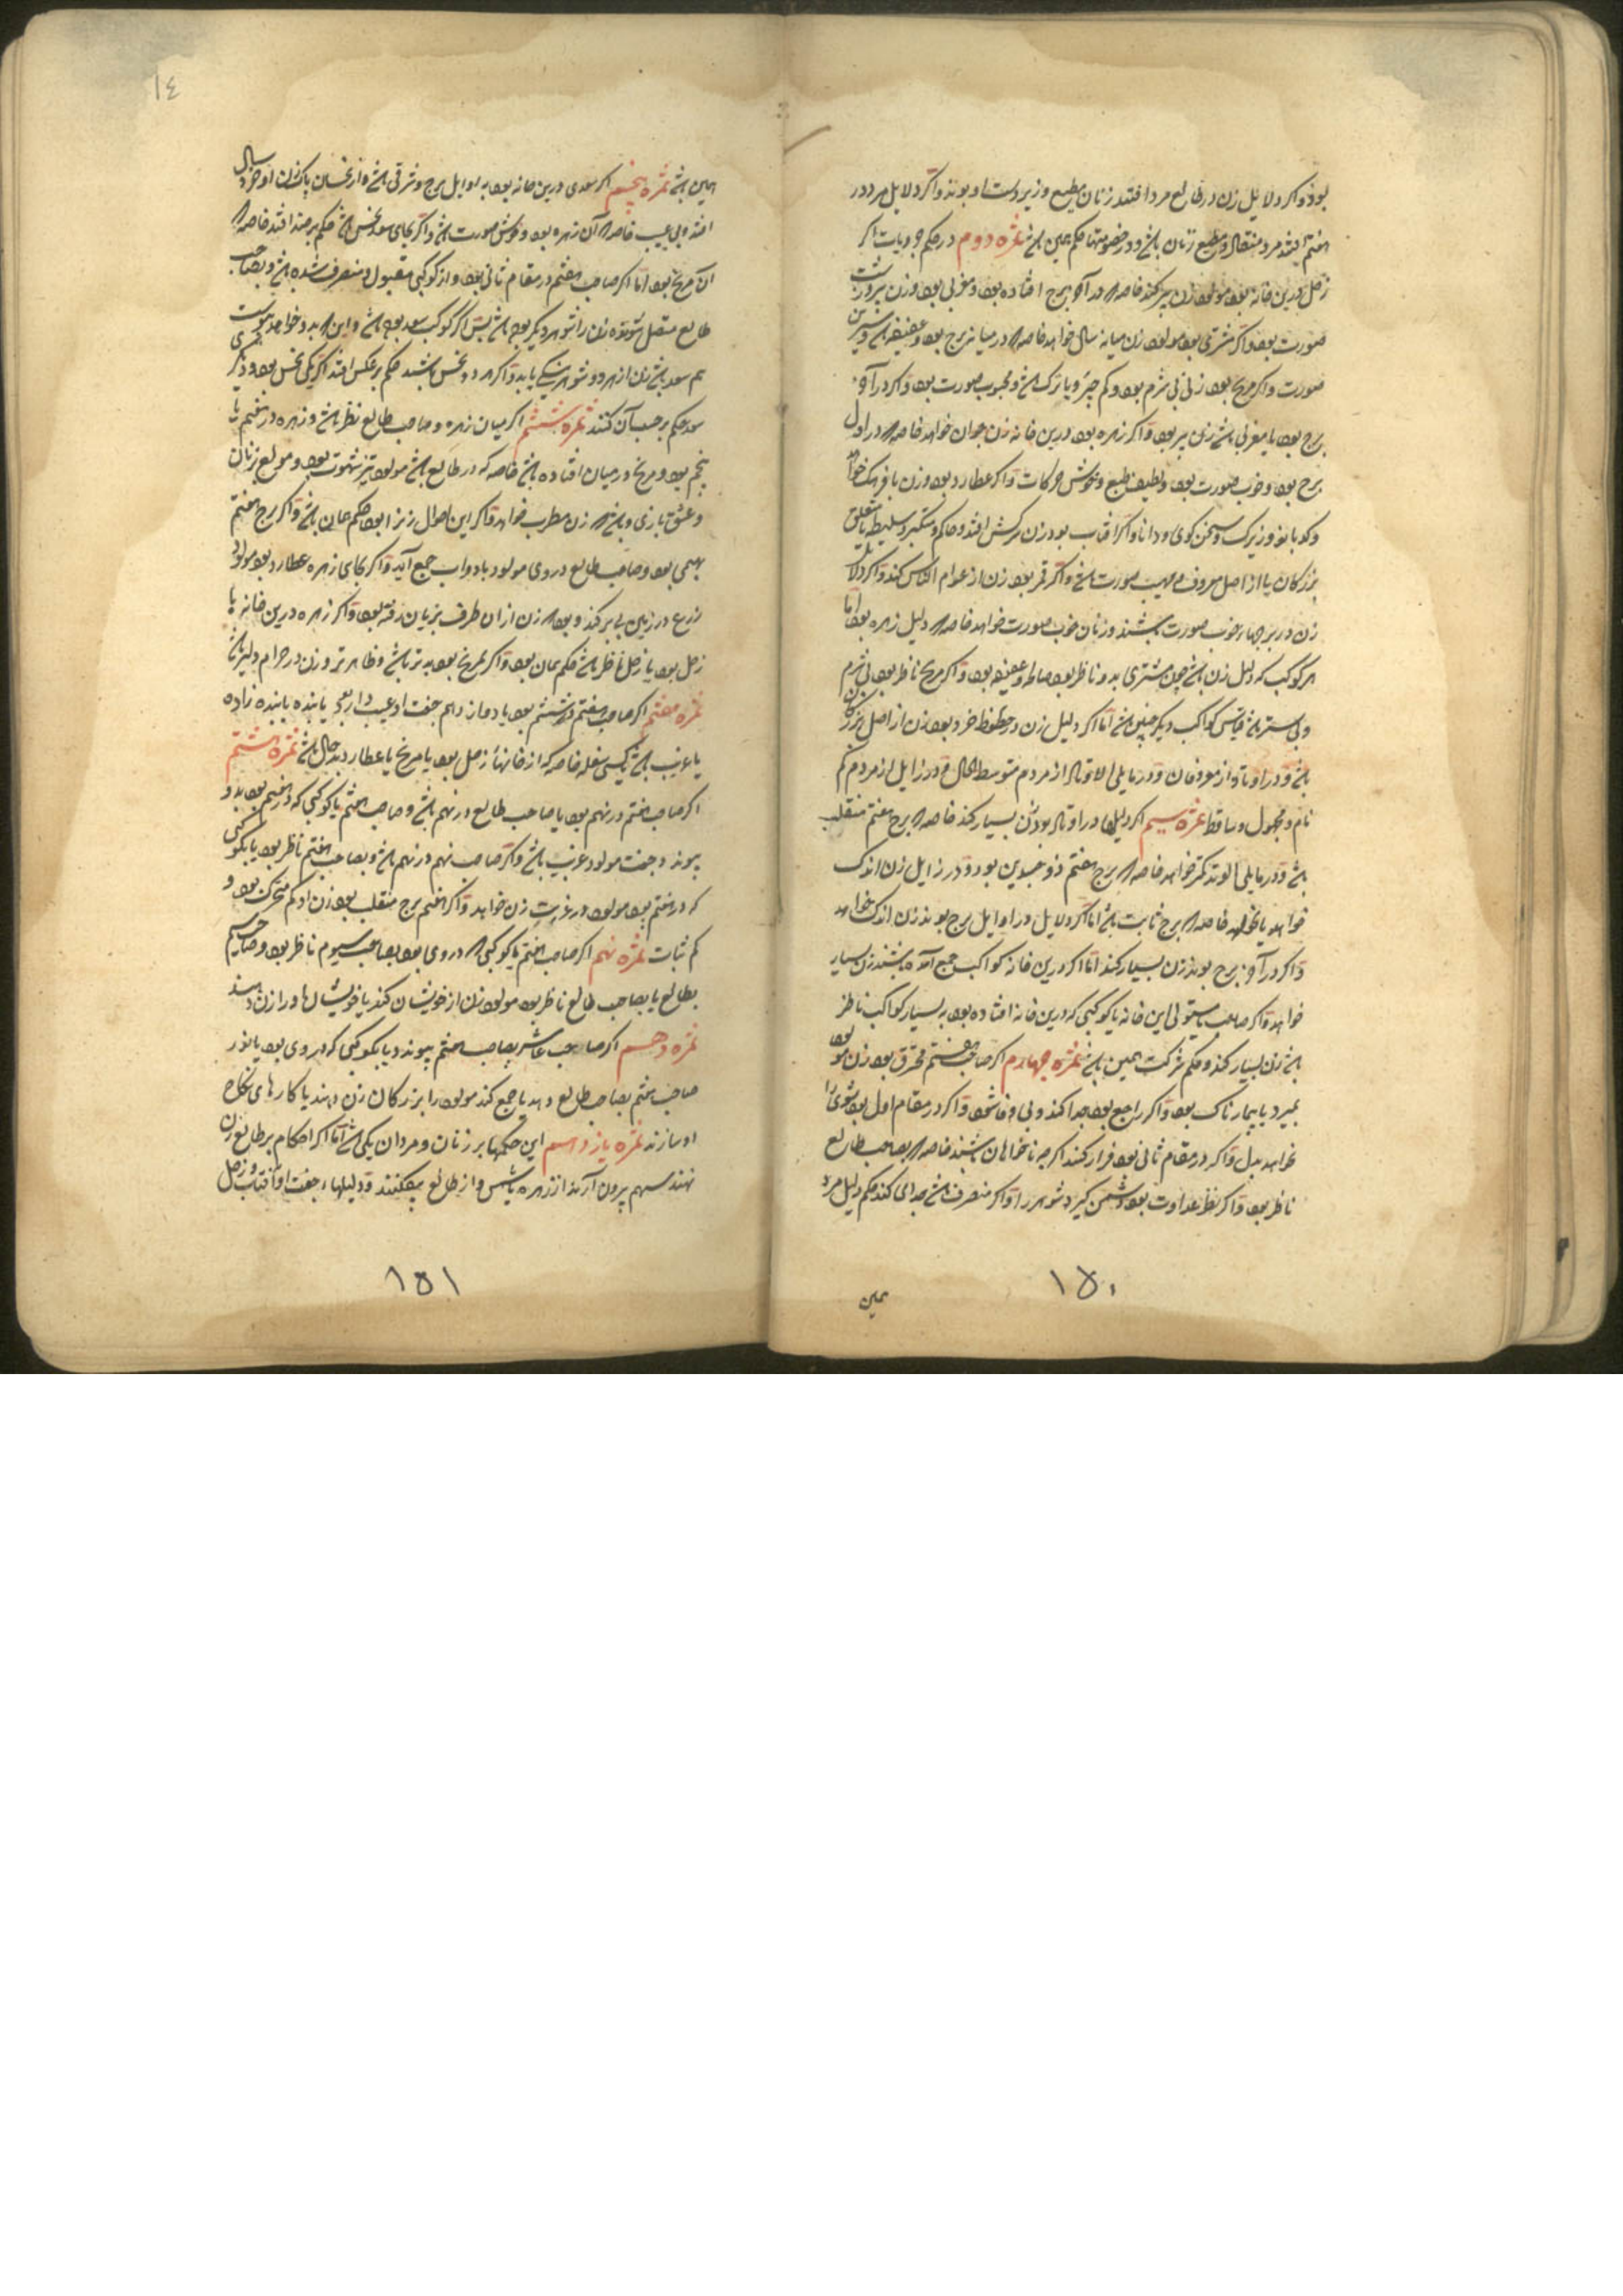 بود و اکر دلایل زن در طالع مرد افتد زنان مطیع و زیردست او بوند و اکر دلایل مرد در
هفتم افتد مرد منقاد و مطیع زنان باشد و در خصومتها حکم همین باشد ثمره دوم در حکم
زحل درین خانه بود مولود زن پیر کند خاصه که در آخر برج افتاده بود و مغربی بود و زن
صورت بود و اکر مشتری بود مولود زن میانه سال خواهد خاصه که در میانه برج بود و عفیفه باشد و
صورت و اکر مریخ بود زنی بی شرم بود و کم چیز و یا ترک باشد و محبوب صورت بود و اکر در آخر
برج بود یا مغربی باشد زن پیر بود و اکر زهره بود درین خانه زن جوان خواهد خاصه که در اول
برج بود و خوب صورت بود و لطیف طبع و خوش حرکات و اکر عطارد بود زن بافرهنک
و کدبانو و زیرک و سخن کوی و دانا و اکر آفتاب بود زن سرکش افتد و حاکم و متکبر و سلیطه
بزرکان یا از اصل معروف و مهیب صورت باشد و اکر قمر بود زن از عوام الناس کند و اکر
زن در برجهاء خوب صورت باشند و زنان خوب صورت خواهد خاصه که دلیل زهره بود اما
هر کوکب که دلیل زن باشد چون مشتری بدو ناظر بود صالحه و عفیفه بود و اکر مریخ ناظر بود بی شرم
و بی ستر باشد قیاس کواکب دیکر چنین باشد اما اکر دلیل زن در حظوظ خود بود زن از اصل بزرک
باشد و در اوتاد از معروفان و در مایلی الاوتاد از مردم متوسط الحال و در زایل از مردم کم
نام و مجهول و ساقط ثمره سیم اکر دلیلها در اوتاد بود زن بسیار کند خاصه که برج هفتم منقلب
باشد و در مایلی الوتد کمتر خواهد خاصه که برج هفتم ذو جسدین بود و در زایل زن اندک
خواهد یا نخواهد خاصه که برج ثابت باشد اما اکر دلایل در اوایل برج بوند زن اندک خواهد
و اکر در آخر برج بوند زن بسیار کند اما اکر درین خانه کواکب جمع آمده باشند زن بسیار
خواهد و اکر صاحب یا مستولی این خانه یا کوکبی که درین خانه افتاده بود به بسیار کواکب ناظر
باشد زن بسیار کند و حکم شرکت همین باشد ثمره چهارم اکر صاحب هفتم محترق بود زن مولود
بمیرد یا بیمارناک بود و اکر راجع بود جدا کند و بی وفا شود و اکر در مقام اول بود شوی را
نخواهد بدل و اکر در مقام ثانی بود فرار کند اکرچه ناخواهان باشند خاصه که بصاحب طالع
ناظر بود و اکر نظر عداوت بود دشمن کیرد شوهر را و اکر منصرف باشد جدایی کند حکم دلیل مرد
همین
۱۵۰
۱۴
همین باشد ثمره پنجم اکر سعدی درین خانه بود به اوایل برج و شرقی باشد و از نحسان پاک زن او خرد سال
افتد و بی عیب خاصه که آن زهره بود و خوش صورت باشد و اکر بجای سعد نحس باشد حکم بر ضد افتد خاصه که
آن مریخ بود اما اکر صاحب هفتم در مقام ثانی بود و از کوکبی مقبول و منصرف شده باشد و بصاحب
طالع متصل شونده زن را شوهر دیکر بوده باشد پس اکر کوکب سعد بود
هم سعد باشد زن از هر دو شوهر نیکی یابد و اکر هر دو نحس باشند حکم بر عکس افتد اکر یکی نحس بود و دیکری
سعد حکم بر حسب آن کنند ثمره ششم اکر میان زهره و صاحب طالع نظر باشد و زهره در هفتم یا
پنجم بود و مریخ در میان افتاده باشد خاصه که در طالع باشد مولود تیز شهوت بود و مولع بزنان
و عشق بازی و زن مطرب خواهد و اکر این احوال زنرا بود حکم همان باشد و اکر برج هفتم
بهیمی بود و صاحب طالع در وی مولود با دواب جمع آید و اکر بجای زهره عطارد بود مولود
زرع در زمین بی بر کند و بود که زن از آن طرف بزیان رفته بود و اکر زهره درین خانه با
زحل بود یا زحل ناظر باشد حکم همان بود و اکر مریخ بود بدتر باشد و ظاهرتر و زن در حرام دلیرتر باشد
ثمره هفتم اکر صاحب هفتم در ششم بود یا دوازدهم جفت او عیب دار بود یا بنده یا بنده زاده
یا غریب باشد یا کسی سفله خاصه که از خانهاء زحل بود یا مریخ یا عطارد بدحال باشد ثمره هشتم
اکر صاحب هفتم در نهم بود یا صاحب طالع در نهم باشد و صاحب هفتم یا کوکبی که در هفتم بود بدو
پیوند و جفت مولود غریب باشد و اکر صاحب نهم در نهم باشد و بصاحب هفتم ناظر بود یا بکوکبی
که در هفتم بود مولود در غربت زن خواهد و اکر هفتم برج منقلب بود زن او کم تحرک بود و
کم ثبات ثمره نهم اکر صاحب هفتم یا کوکبی که در وی بود بصاحب سیوم ناظر بود و صاحب سیم
بطالع یا بصاحب طالع ناظر بود مولود زن از خویشان کند یا خویشان او را زن دهند
ثمره دهم اکر صاحب عاشر بصاحب هفتم پیوندد یا بکوکبی که در وی بود یا نور
صاحب هفتم بصاحب طالع دهد یا جمع کند مولود را بزرکان زن دهند یا کارهای نکاح
او سازند ثمره یازدهم این حکمها بر زنان و مردان یکی باشد اما اکر احکام بر طالع زن
نهند سهم بیرون آرند از زهره یا شمس و از طالع بیفکنند و دلیلهاء جفت او آفتاب و زحل
۱۵۱